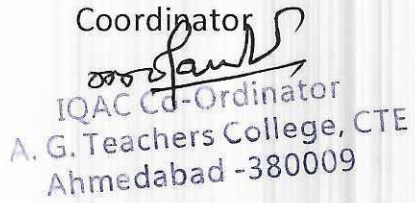 Coordinator
IQAC Co-Ordinator
A. G. Teachers College, CTE
Ahmedabad -380009